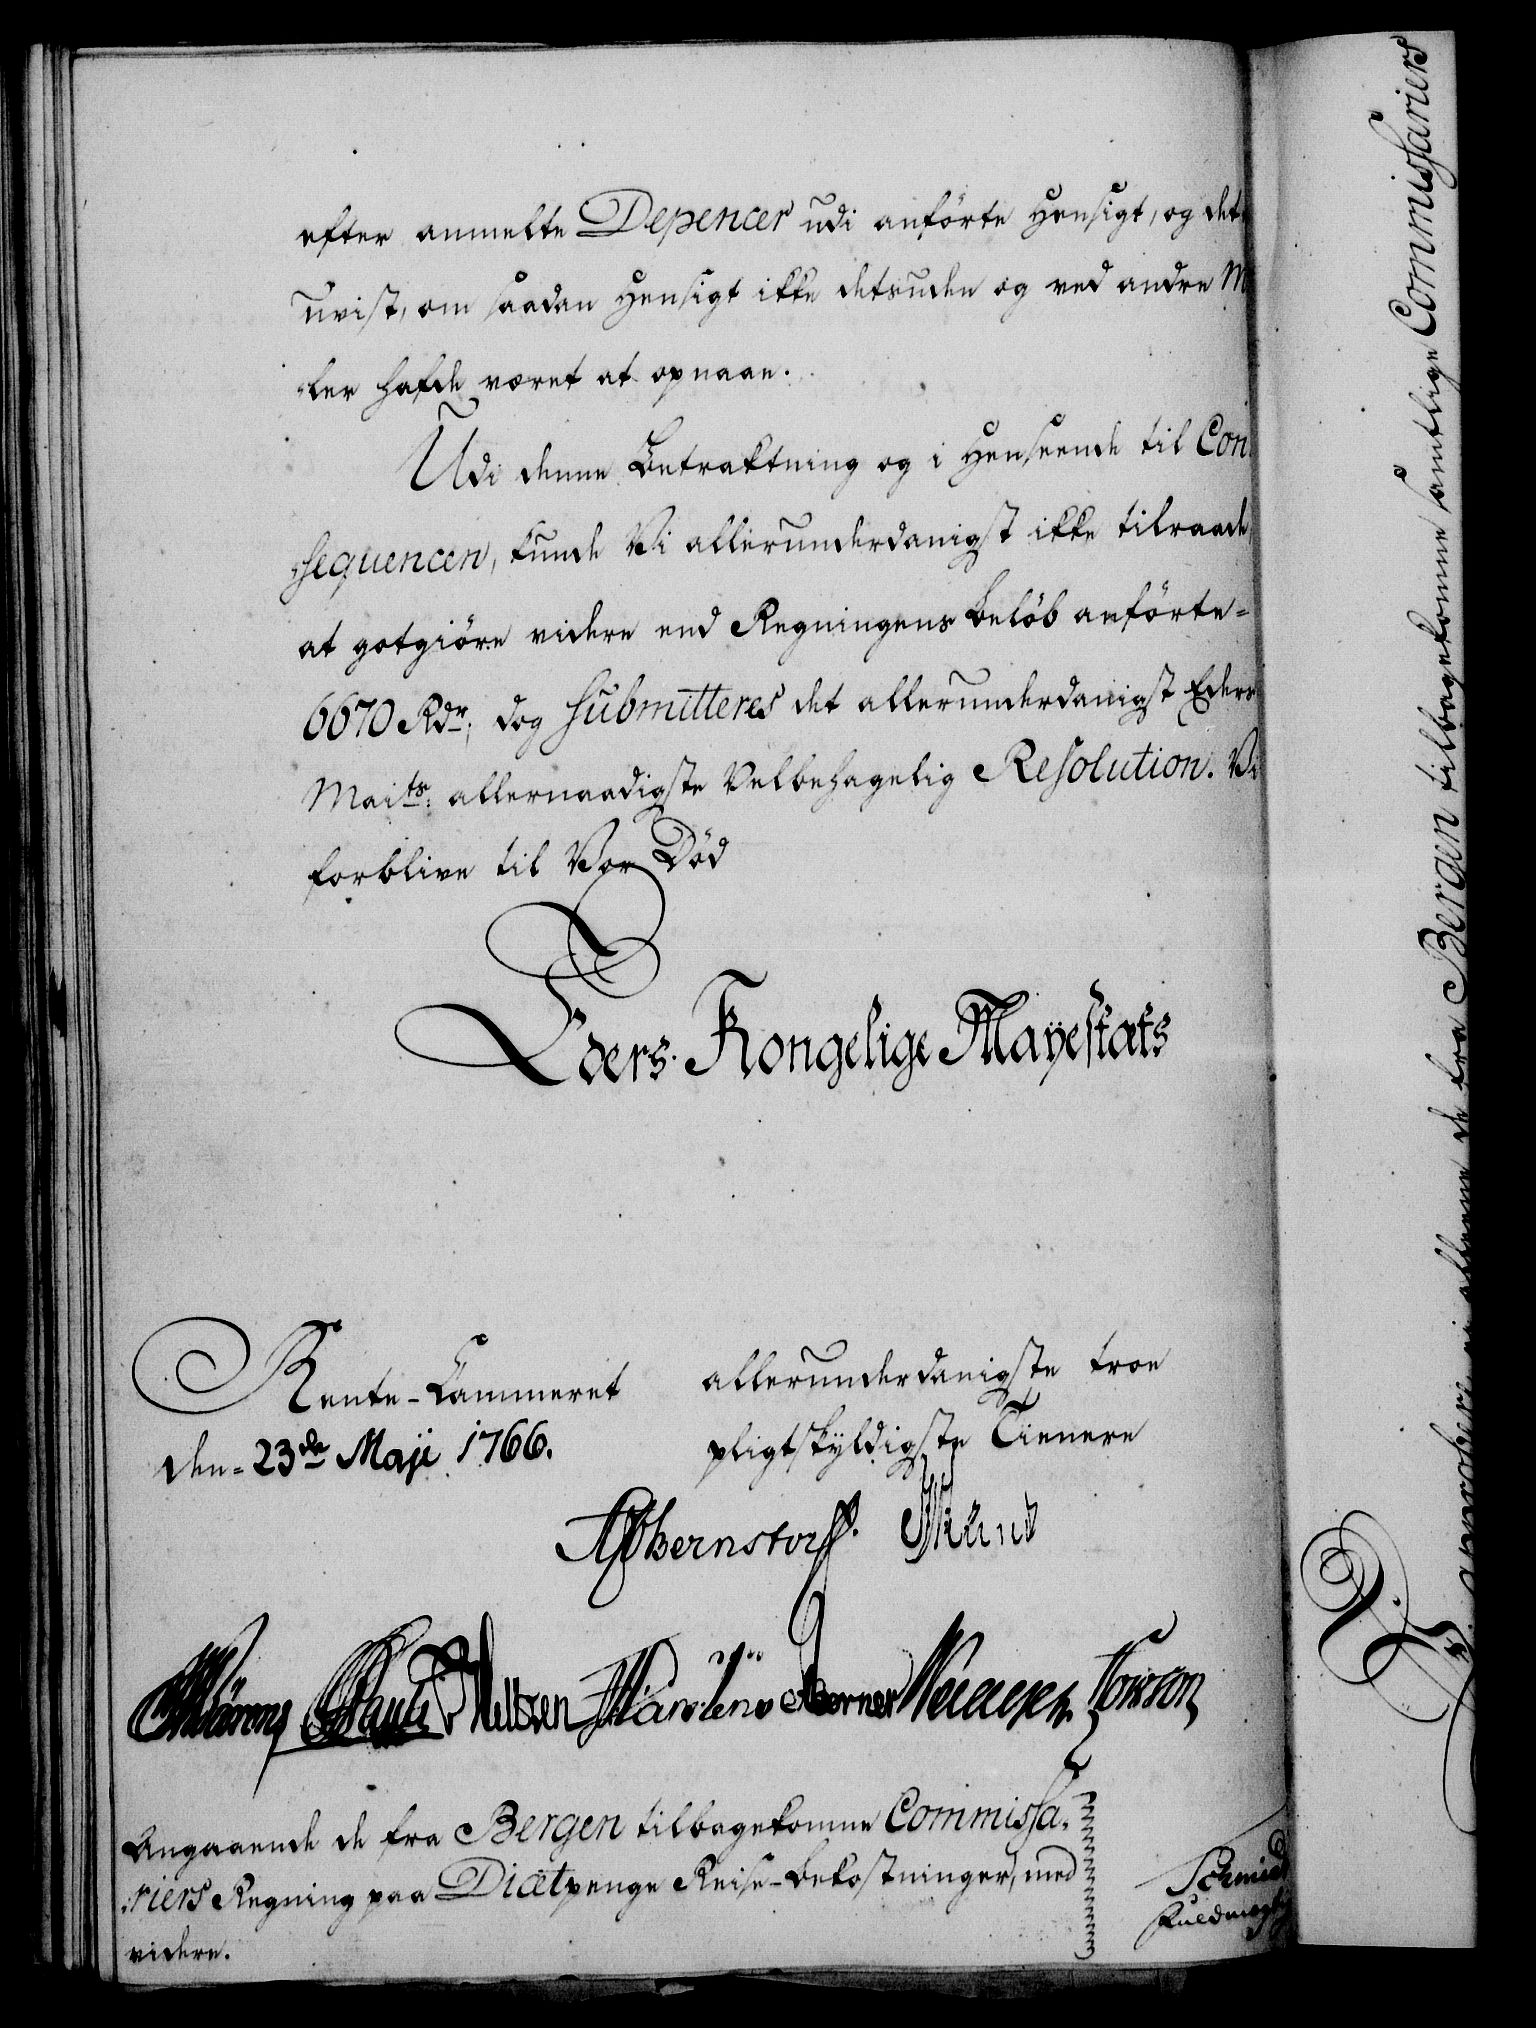 efter anmelte Depencer udi anförte Hensigt, og det
uvist, om saadan Hensigt ikke desuden og ved andre M
ler hafde været at opnaae.
Udi denne Betraktning og i Henseende til Con
sequencen, kunde Vi allerunderdanigst ikke tilraade
at gotgiöre videre end Regningens Belöb anförte
6670 Rdr, dog submitteres det allerunderdanigst Eders
Maits: allernaadigste Velbehagelig Resolution. Vi
forblive til Vor Död
Eders Kongelige Mayestæts
Rente-Cammeret
den 23de Maji 1766.
allerunderdanigste troe
pligtskyldigste Tienere
Bernstorff.
Angaaende de fra Bergen tilbagekomne Commissa-
riers Regning paa Diætpenge Reise-Bekostninger, med
videre.
Schmidt
Fuldmægtig
Vi approbere allene de fra Bergen tilbagekomne samtlige Commissariers